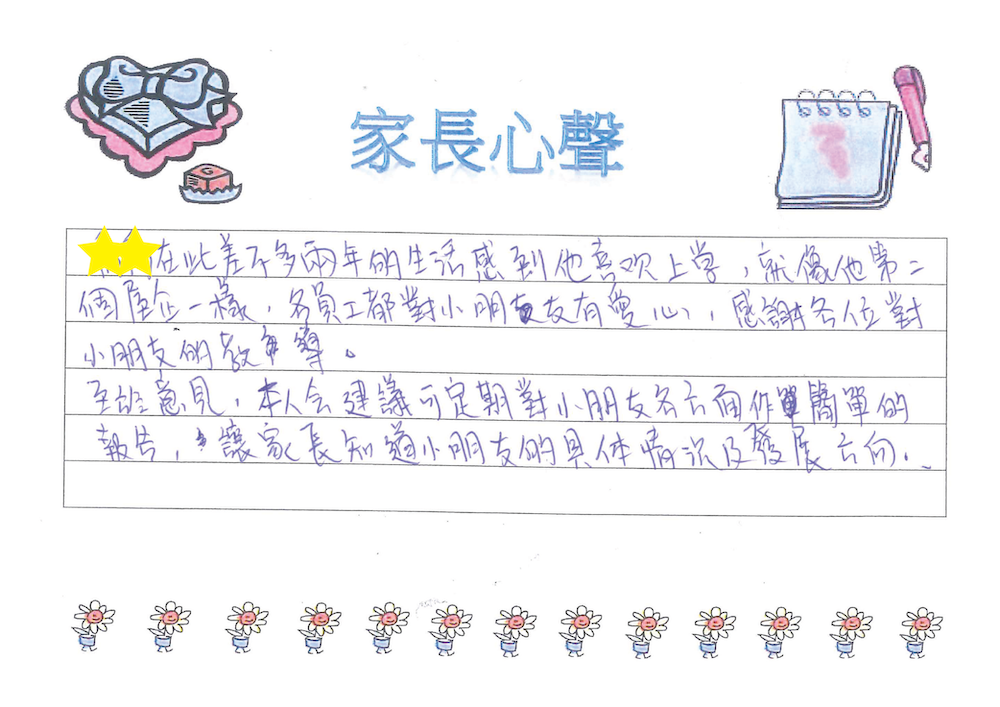 家長心聲
在此差不多兩年的生活感到他喜欢上学，就像他第二
個屋企一樣，各員工都對小朋友友有愛心，感謝各位對
小朋友的教導。
至於意見，本人会建議可定期對小朋友各方面作簡單的
報告，讓家長知道小朋友的具体情況及發展方向.